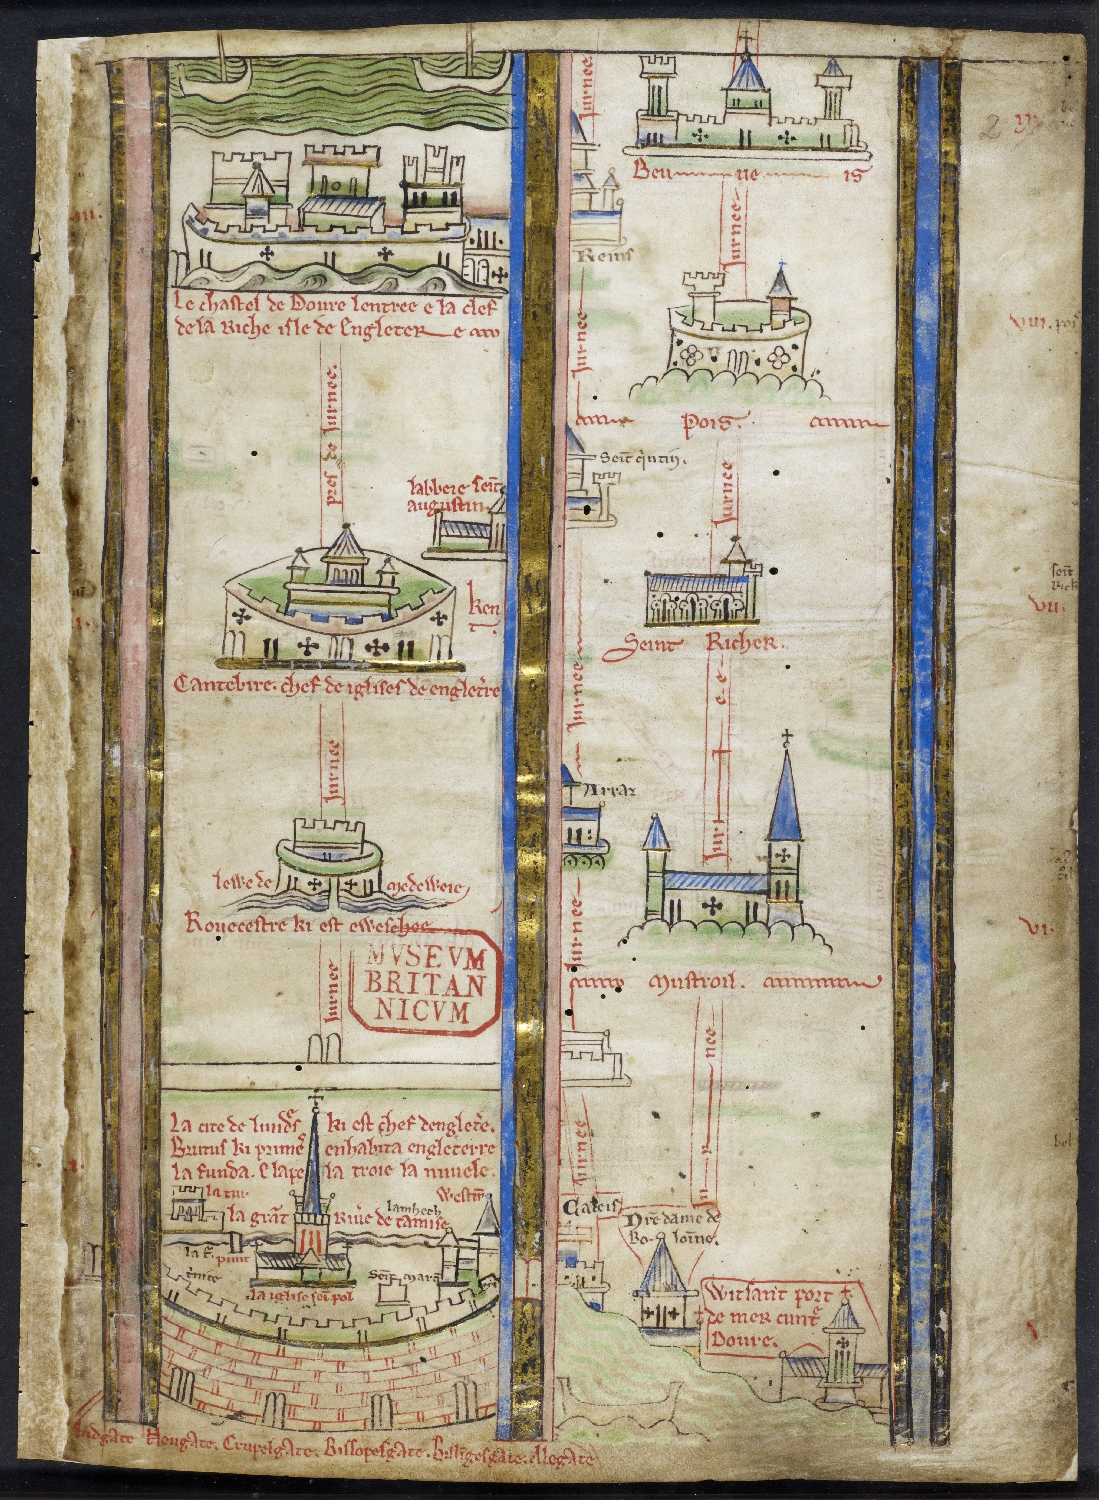 Le chastel de Doure lentree e la clef
de la Riche isle de Engletere
pres de Jurnee.
labbeie seint
augustin.
Ken
t.
Cantebire. chef de iglises de engletere
Jurnee
lewe de
medeweie
Rouecestre ki est eweschee.
MVSEVM
BRITAN
NICVM
Jurnee
La cite de lundres ki est chef dengletere.
Brutus ki primes enhabita engleterre
la funda. E lapela troie la nuuele.
la tur
westm
la grant Riuere de tamise
lambeth
punt
Seint marie
la iglise seint pol
Ludgate Neugate. Crupelgate. Bissopesgate. Billigesgate. Alegate
Jurnee
Beuueis
Jurnee
Reins
Jurnee
Pois.
Seint quintin.
Jurnee
Seint Richer.
Jurnee
Jurnee
Arraz
Jurnee
Mustroil.
Jurnee
Jurnee
Caleis
Nostre dame de
Boloine.
Witsant port
de mer cuntre
Doure.
2
viii.
vii.
vi.